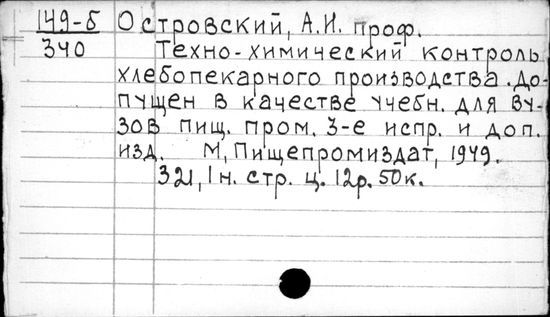 149-б
340
Островский, А.И. проф.
Техно-химический контроль
хлебопекарного производства. До-
пущен в качестве учебн. для ву-
зов пищ. пром. 3-е испр. и доп.
изд. М, Пищепромиздат, 1949.
321, 1 н. стр. ц. 12р. 50к.